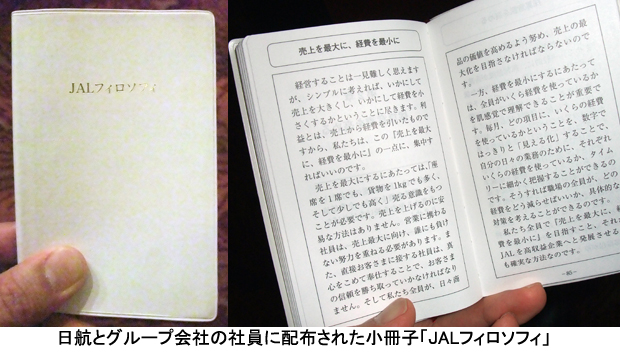 JALフィロソフィ
売上を最大に、経費を最小に
経営することは一見難しく思えます
が、シンプルに考えれば、いかにして
売上を大きくし、いかにして経費を小
さくするかということに尽きます。利
益とは、売上から経費を引いたもので
すから、私たちは、この『売上を最大
に、経費を最小に』の一点に、集中す
ればいいのです。
売上を最大にするにあたっては、「座
席を1席でも、貨物を1kgでも多く、
そして少しでも高く」売る意識をもつ
ことが必要です。売上を上げるのに安
易な方法はありません。営業に携わる
社員は、売上最大に向け、誰にも負け
ない努力を重ねる必要があります。ま
た、直接お客さまに接する社員は、真
心をこめて奉仕することで、お客さま
の信頼を勝ち取っていかなければなり
ません。そして私たち全員が、日々商
品の価値を高めるよう努め、売上の最
大化を目指さなければならないので
す。
一方、経費を最小にするにあたって
は、全員がいくら経費を使っているか
を肌感覚で理解できることが重要で
す。毎月、どの項目に、いくらの経費
を使っているかということを、数字で
はっきりと「見える化」することで、
自分の日々の業務のために、それぞれ
いくらの経費を使っているか、タイム
リーに細かく把握することができるの
です。そうすれば職場の全員が、どの
経費をどう減らせばいいか、具体的な
対策を考えることができるのです。
私たち全員で「売上を最大に、経
費を最小に」を目指すこと、それが
JALを高収益企業へと発展させる
も確実な方法なのです。
日航とグループ会社の社員に配布された小冊子「JALフィロソフィ」